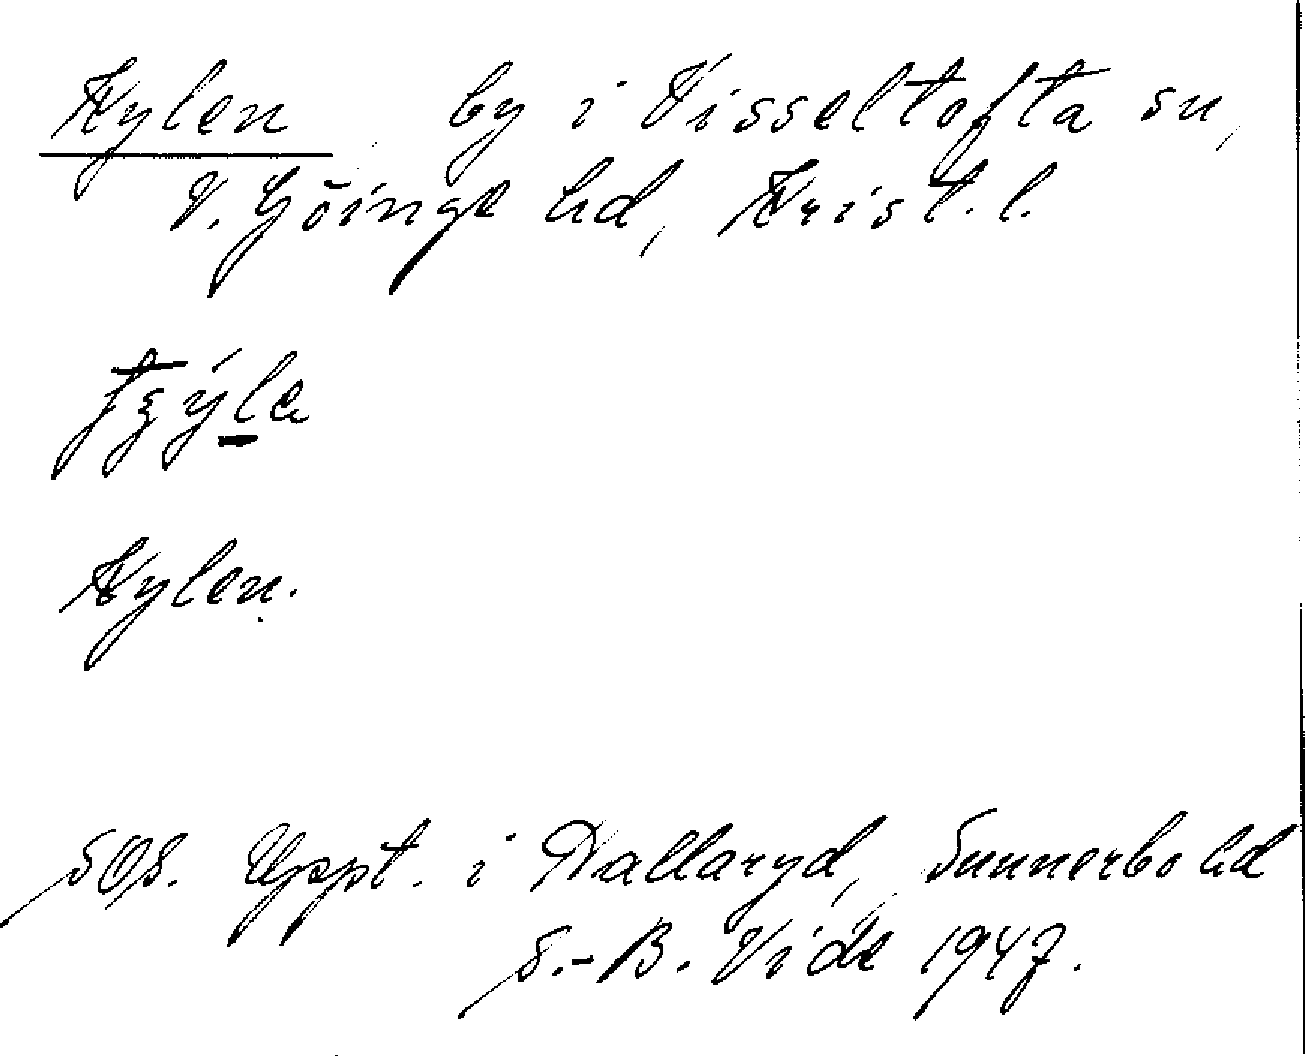 Kylen, by i Visseltofta sn,
V. Göinge hd, Krist. l.
Kylen.
SOS. Uppt. i Hallaryd, Sunnerbo hd
S.-B. Vide 1947.